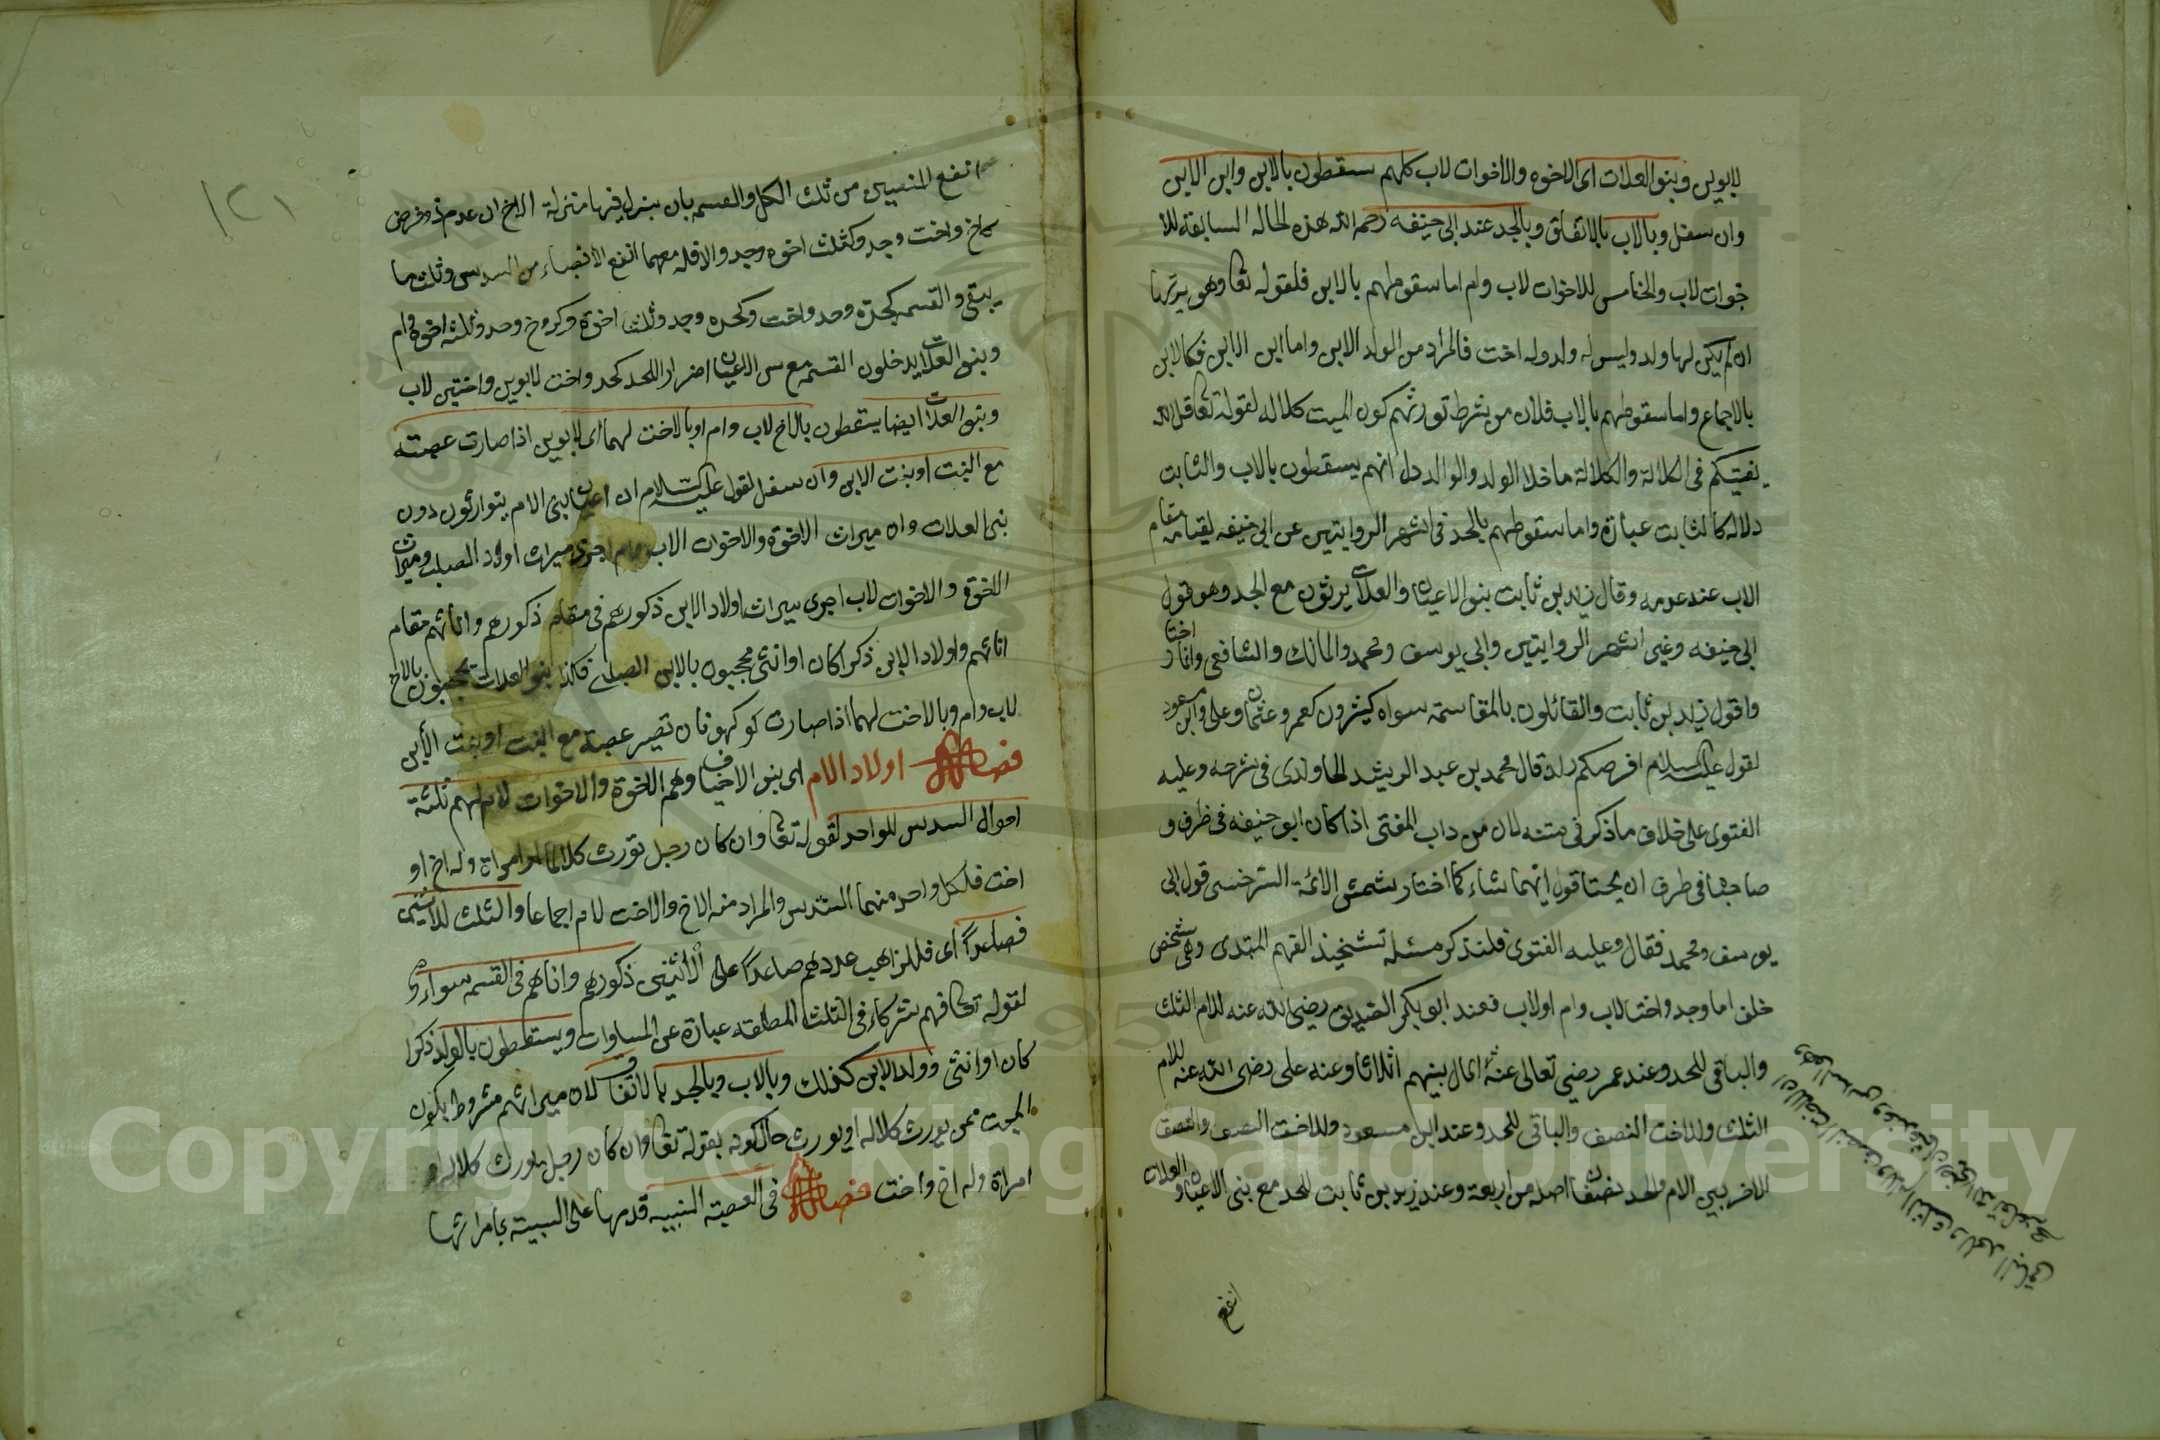 لابوين وبنو العلات اى الاخوه والاخوات لاب كلهم سقطون بالابن وابن الابن
وان سفل وبالاب بالاتفاق وبالجد عند ابى حنيفه رحمه الله هذه الحاله السابقة للا
خوات لاب والخامس للاخوات لاب وام اما سقوطهم بالابن فلقوله تعا وهو يرثها
ان لم يكن لها ولد وليس له ولد وله اخت فالمراد من الولد الابن واما ابن الابن فكالابن
بالاجماع واما سقوطهم بالاب فلان من شرط توريثهم كون الميت كلاله لقوله تعا قل الله
يفتيكم فى الكلالة والكلالة ما خلا الولد والوالد دل انهم يسقطون بالاب والثابت
دلاله كالثابت عبارة واما سقوطهم بالجد فى اشهر الروايتين عن ابى حنيفه لقيامه مقام
الاب عند عدمه وقال زيد بن ثابت بنو الاعيان والعلات يرثون مع الجد وهو قول
ابى حنيفه وغير اشهر الروايتين وابى يوسف ومحمد والمالك والشافعى وانا اختار
واقول زيد بن ثابت والقائلون بالمقاسمة سواه كثيرون كعمر وعثمان وعلى وابن مسعود
لقول عليه السلام افرضكم زيد قال محمد بن عبد الرشيد فى شرحه وعليه
الفتوى على خلاف ما ذكر فى متنه لان من داب المفتى اذا كان ابو حنيفه فى طرف و
صاحبها فى طرف ان يختار قول ايهما شاء كما اختار شمس الائمة السرخسى قول ابى
يوسف ومحمد فقال وعليه الفتوى فلنذكر مسئلة تشحيذ الفهم المبتدى وهى شخص
خلف اما وجد واختا لاب وام او لاب فعند ابو بكر الصديق رضى الله عنه للام الثلث
والباقى للجد وعند عمر رضى تعالى عنه المال بينهم اثلاثا وعنه على رضى الله عنه للام
الثلث وللاخت النصف والباقى للجد وعند ابن مسعود وللاخت النصف والنصف
الاخر بين الام والجد نصفان اصله من اربعة وعند زيد بن ثابت للجد مع بنى الاعيان والعلات
انفع
١٢١
انفع النصيبين من ثلث الكل والقسمه بان ينزل فيها منزلة الاخ ان عدم ذو فرض
كاخ واخت وجد وكثلث اخوه وجد والا فله معهما انفع الانصباء من السدس وثلث ما
يبقى والقسمه كجدة وجد واخت وكجده وجد وثلث اخوة وكزوج وجد وثلثة اخوة وام
وبنو العلات يدخلون القسمة مع بنى الاعيان اضرارا للجد كجد واخت لابوين واختين لاب
وبنو العلات ايضا يسقطون بالاخ لاب وام او بالاخت لهما اى لابوين اذا صارت عصبته
مع البنت او بنت الابن وان سفل لقول عليه السلام ان اعيان بنى الام يتوارثون دون
بنى العلات وان ميراث الاخوة والاخوات الاب وام اجرى ميراث اولاد الصلب وميراث
الاخوة والاخوات لاب اجرى ميراث اولاد الابن ذكورهم فى مقام ذكورهم واناثهم مقام
اناثهم واولاد الابن ذكرا كان او انثى محجبون بالابن الصلبى فكذا بنو العلات محجبون بالاخ
لاب وام وبالاخت لهما اذا صارت كوكهو فان تصير عصبة مع البنت او بنت الأبن
فصل اولاد الام اى بنو الاخياف وهم الاخوة والاخوات لام لهم ثلثة
احوال السدس للواحد لقوله تعا وان كان رجل يورث كلالة او امراة وله اخ او
اخت فلكل واحد منهما السدس والمراد منه الاخ والاخت لام اجماعا والثلث للاثنين
فصاعدا اى فللذاهب عددهم صاعدا على الاثنين ذكورهم واناثهم فى القسم سواء و
لقوله تعا فهم شركاء فى الثلث المطلقه عبارة عن المساوات ويسقطون بالولد ذكرا
كان او انثى وولد الابن كذلك وبالاب وبالجد بالاتفاق لان ميراثهم مشروط بكون
الميت ممن يورث كلاله او يورث حال كونه بقوله تعا وان كان رجل يورث كلاله او
امراة وله اخ واخت فصل فى العصبة النسبيه قدمها على السببية